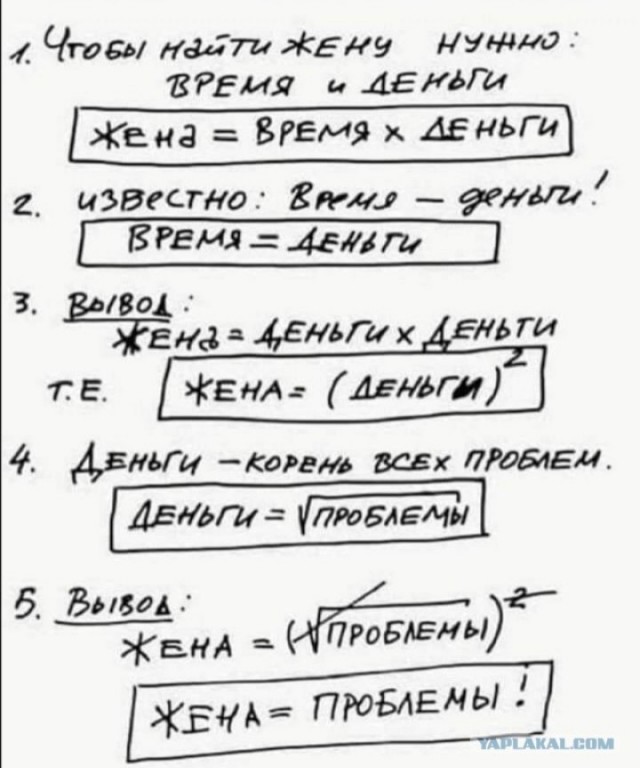 1. Чтобы найти жену нужно:
ВРЕМЯ и ДЕНЬГИ
Жена = ВРЕМЯ х ДЕНЬГИ
2. известно: Время — деньги!
ВРЕМЯ = ДЕНЬГИ
3. Вывод:
Жена = Деньги х Деньги
Т.Е. ЖЕНА = (ДЕНЬГИ)²
4. Деньги – корень всех проблем.
ДЕНЬГИ = √ПРОБЛЕМЫ
5. Вывод:
ЖЕНА = (√ПРОБЛЕМЫ)²
ЖЕНА = ПРОБЛЕМЫ!
YAPLAKAL.COM